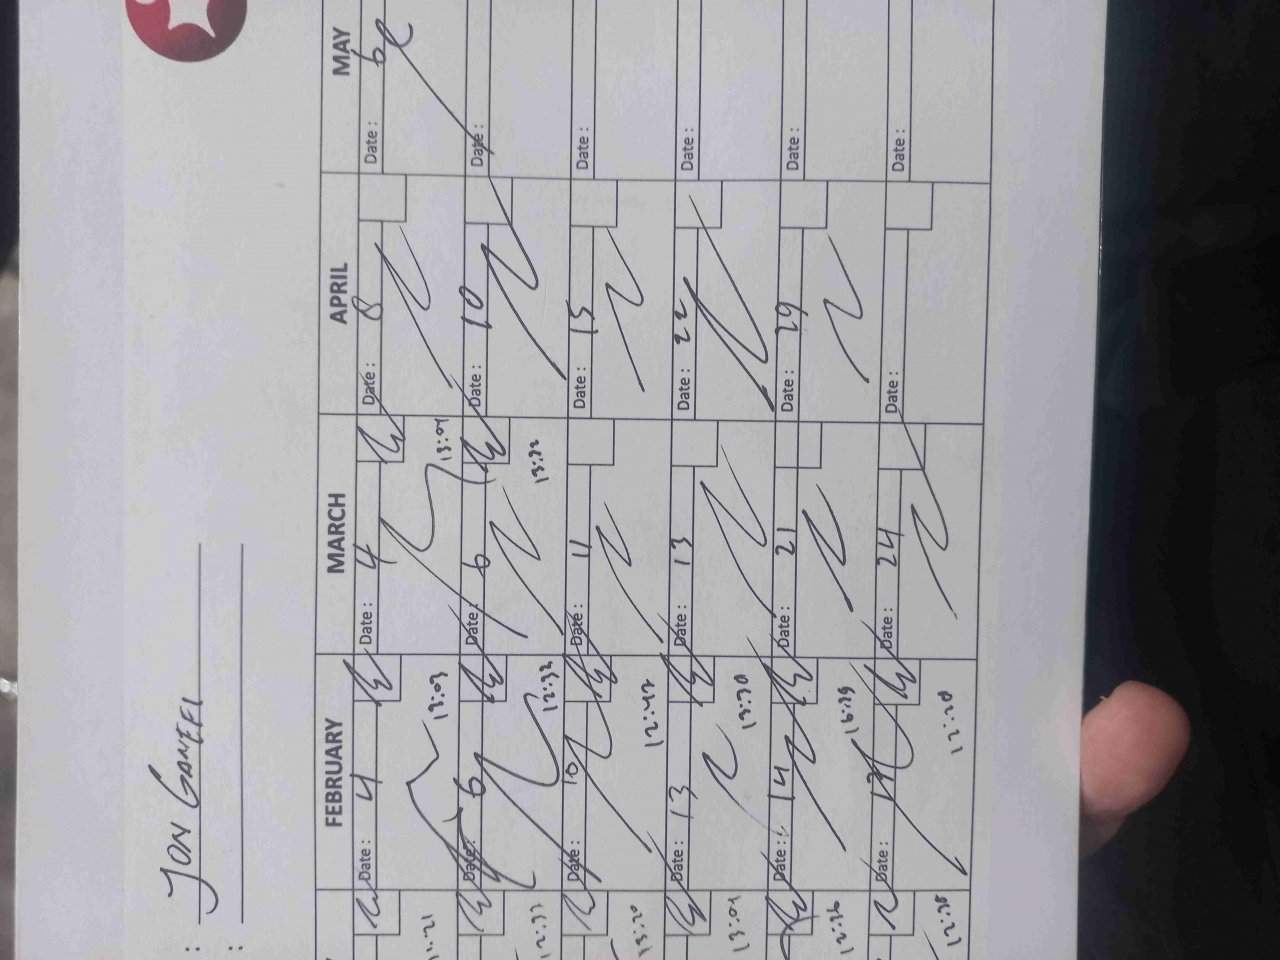 : JON GANEFI
:
FEBRUARY MARCH APRIL MAY
Date : 4 Date : 4 Date : 8 Date : 6
11:21 13:03 13:07
Date : 6 Date : 6 Date : 10 Date :
12:33 12:32 13:32
Date : 10 Date : 11 Date : 15 Date :
13:20 12:42
Date : 13 Date : 13 Date : 22 Date :
13:01 13:30
Date : 14 Date : 21 Date : 29 Date :
12:36 16:39
Date : Date : 24 Date : Date :
12:38 12:20